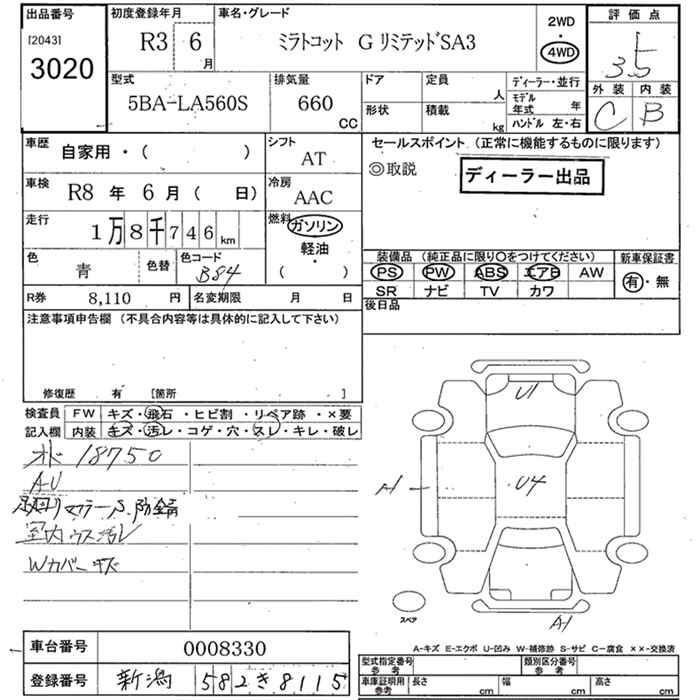 出品番号
[2043]
3020
初度登録年月
R3 6
月
車名・グレード
ミラトコット G リミテッドSA3
2WD
・
4WD
評価点
3.5
外装 内装
C B
型式
5BA-LA560S
排気量
660
CC
ドア
形状
定員
人
積載
kg
ディーラー・並行
モデル
年式 年
ハンドル 左・右
車歴
自家用・( )
シフト
AT
車検
R8 年 6 月 ( 日)
冷房
AAC
走行
1万8千746km
燃料
ガソリン
軽油
・
( )
色
青
色替
色コード
B84
R券 8,110 円
名変期限 月 日
セールスポイント (正常に機能するものに限ります)
◎取説
ディーラー出品
装備品 (純正品に限り○をつけてください)
PS PW ABS エアB AW
SR ナビ TV カワ
新車保証書
有・無
後日品
注意事項申告欄(不具合内容等は具体的に記入して下さい)
修復歴 有 [箇所 ]
検査員
記入欄
FW キズ・飛石・ヒビ割・リペア跡・×要
内装 キズ・汚レ・コゲ・穴・スレ・キレ・破レ
18750
AU
マフラーS.防錆
室内ウス汚レ
Wカバーキズ
U1
U4
A1
A1
スペア
A-キズ E-エクボ U-凹み W-補修跡 S-サビ C-腐食 ××-交換済
車台番号 0008330
登録番号 新潟 582き8115
型式指定番号
参考
類別区分番号
参考
車庫証明用
参考
長さ cm 幅 cm 高さ cm